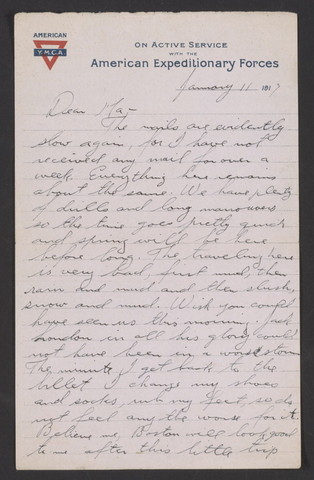 AMERICAN
Y.M.C.A.
ON ACTIVE SERVICE
WITH THE
American Expeditionary Forces
January 11 1917
Dear Ma,-
The mails are evidently
slow again, for I have not
received any mail for over a
week. Everything here remains
about the same. We have plenty
of drills and long manouvers
so the time goes pretty quick
and spring will be here
before long. The traveling here
is very bad, first mud, then
rain and mud and then slush,
snow and mud. Wish you could
have seen us this morning. Jack
London in all his glory could
not have been in a worse storm
The minute I get back to the
billet I change my shoes
and socks, rub my feet so do
not feel any the worse for it.
Believe me, Boston will look good
to me after this little trip